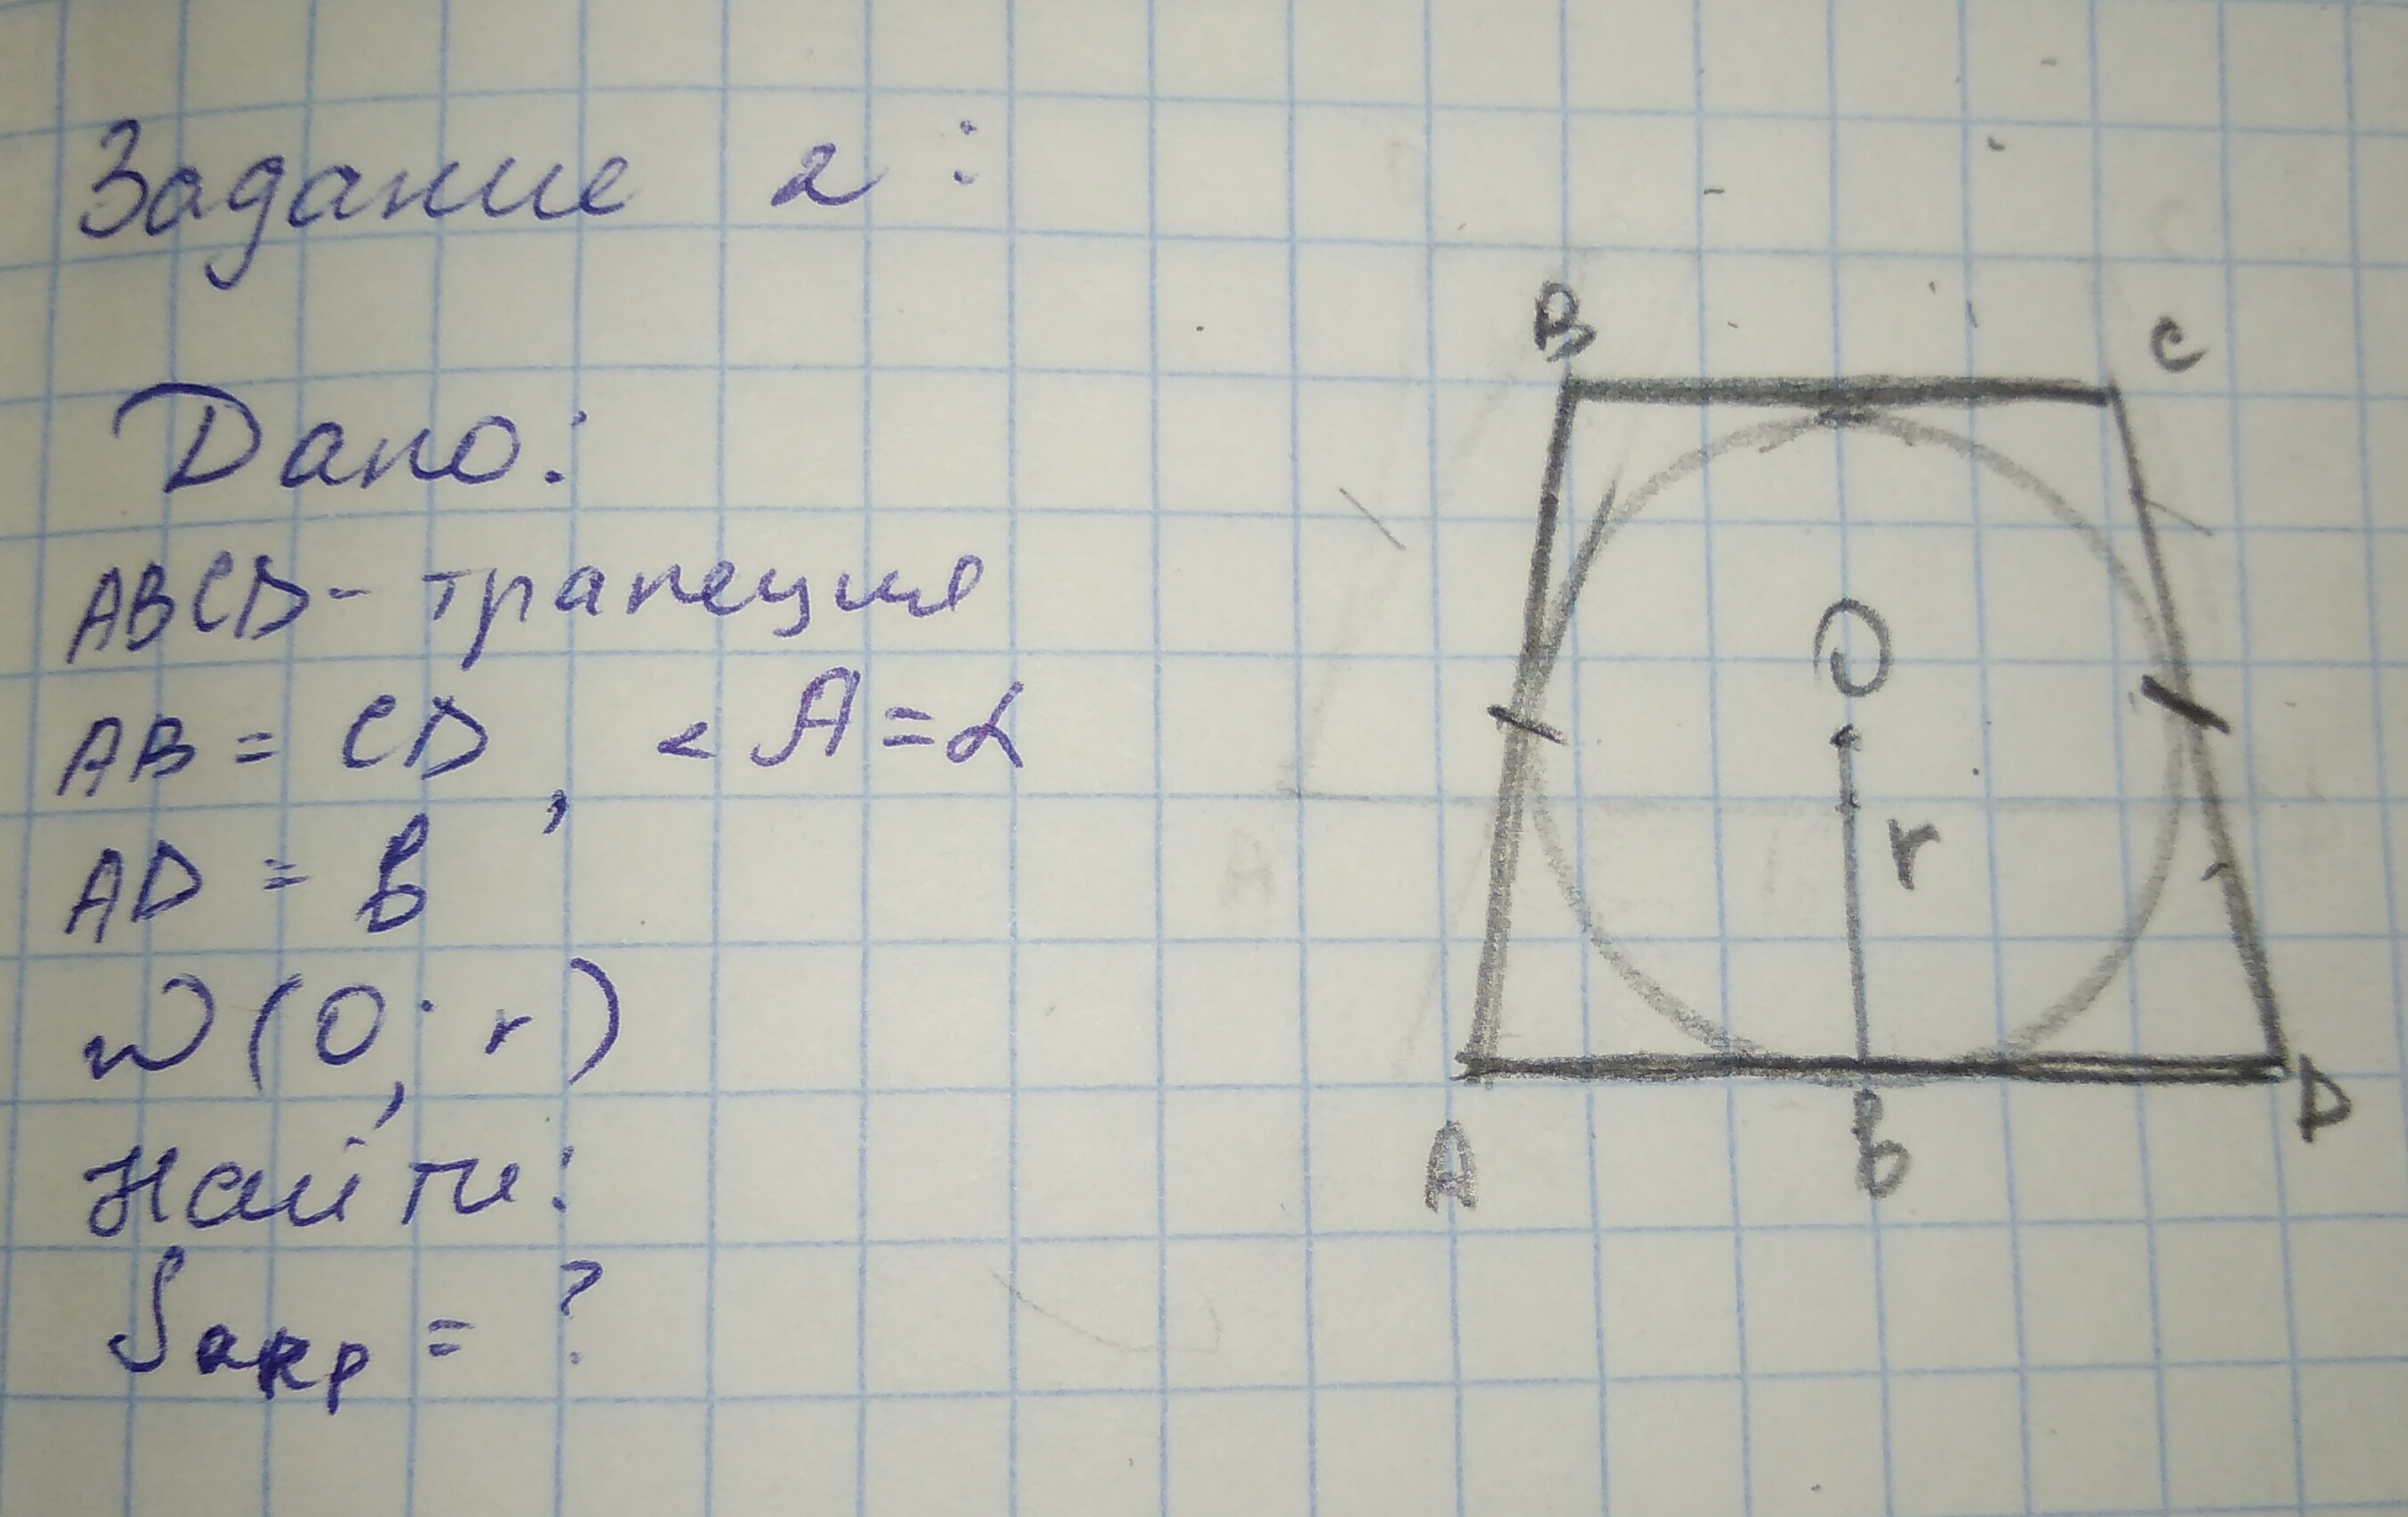 Задание 2:
Дано:
ABCD - трапеция
AB = CD, < A = α
AD = b
ω (O; r)
Найти:
Sокр = ?
B
C
O
r
A
b
D